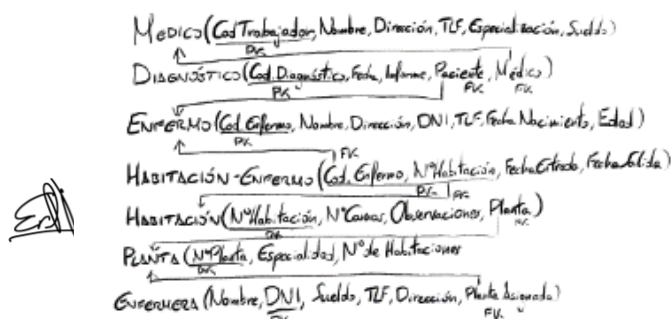 MEDICO (Cod Trabajador, Nombre, Dirección, TLF, Especialización, Sueldo)
PK
DIAGNÓSTICO (Cod. Diagnóstico, Fecha, Informe, Paciente, Médico)
PK FK FK
ENFERMO (Cod. Enfermo, Nombre, Dirección, DNI, TLF, Fecha Nacimiento, Edad)
PK
FK
HABITACIÓN-ENFERMO (Cod. Enfermo, NºHabitación, FechaEntrada, FechaSalida)
PK FK
HABITACIÓN (NºHabitación, NºCamas, Observaciones, Planta)
PK FK
PLANTA (NºPlanta, Especialidad, Nº de Habitaciones
PK
ENFERMERA (Nombre, DNI, Sueldo, TLF, Dirección, Planta Asignada)
PK FK